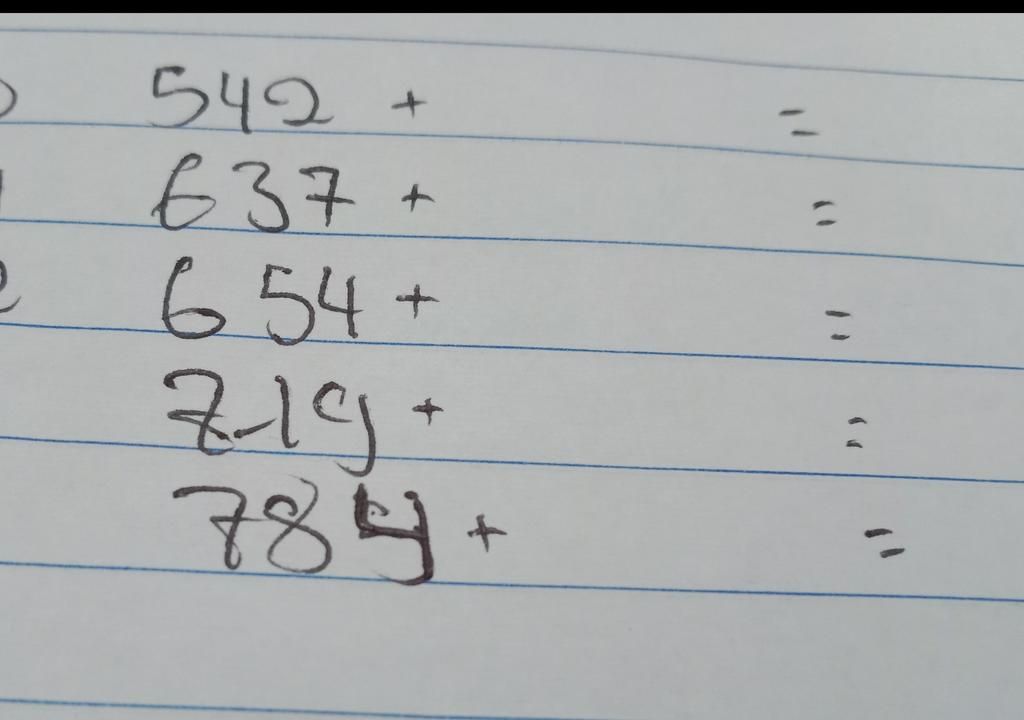 542 + =
637 + =
654 + =
719 + =
784 + =